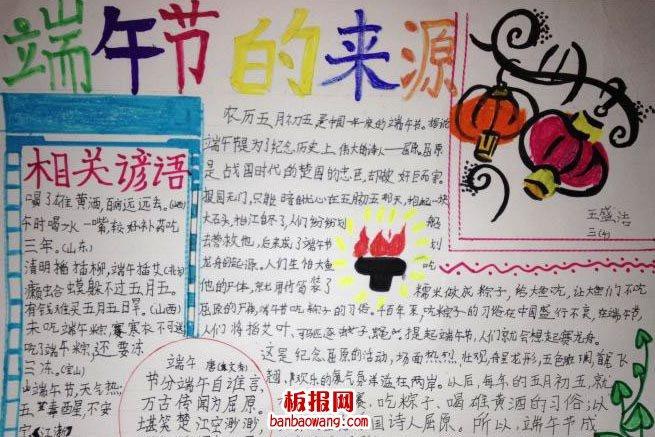 端午节的来源
相关谚语
喝了雄黄酒,百病远远去。(山西)
午时喝水一嘴,较好补药吃
三年。(山东)
清明插柳,端午插艾
癞蛤蟆躲不过五月五。
有钱难买五月五日旱。(山西)
未吃端午粽,寒衣不可送
吃了端午粽,还要冻
三冻。
端午节,天气热;
五毒醒,不安
宁(江浙)
端午
节分端午自谁言,
万古传闻为屈原。
堪笑楚江空渺渺,
农历五月初五是中国一年一度的端午节。据说
端午节是为了纪念历史上伟大的诗人——屈原。屈原
是战国时代的楚国的忠臣,却被奸臣
报国无门,只能
大石头,
去替救他,后来成了端午节
龙舟的起源。人们生怕大鱼
吃他的尸体,就用竹筒装了
糯米做成粽子,给大鱼吃,让大鱼们不吃
屈原的尸体,端午节吃粽子的习俗。千百年来,吃粽子的习俗在中国盛行不衰,在端午节,
人们将插艾叶,提起端午节,人们就会想起赛龙舟。
这是纪念屈原的活动,场面热烈、壮观,舟呈龙形,五色斑斓,首尾飞
翘,欢乐的气氛洋溢在两岸。以后,每年的五月初五,就
吃粽子、喝雄黄酒的习俗;以
国诗人屈原。所以,端午节成
王盛浩
板报网
banbaowang.com